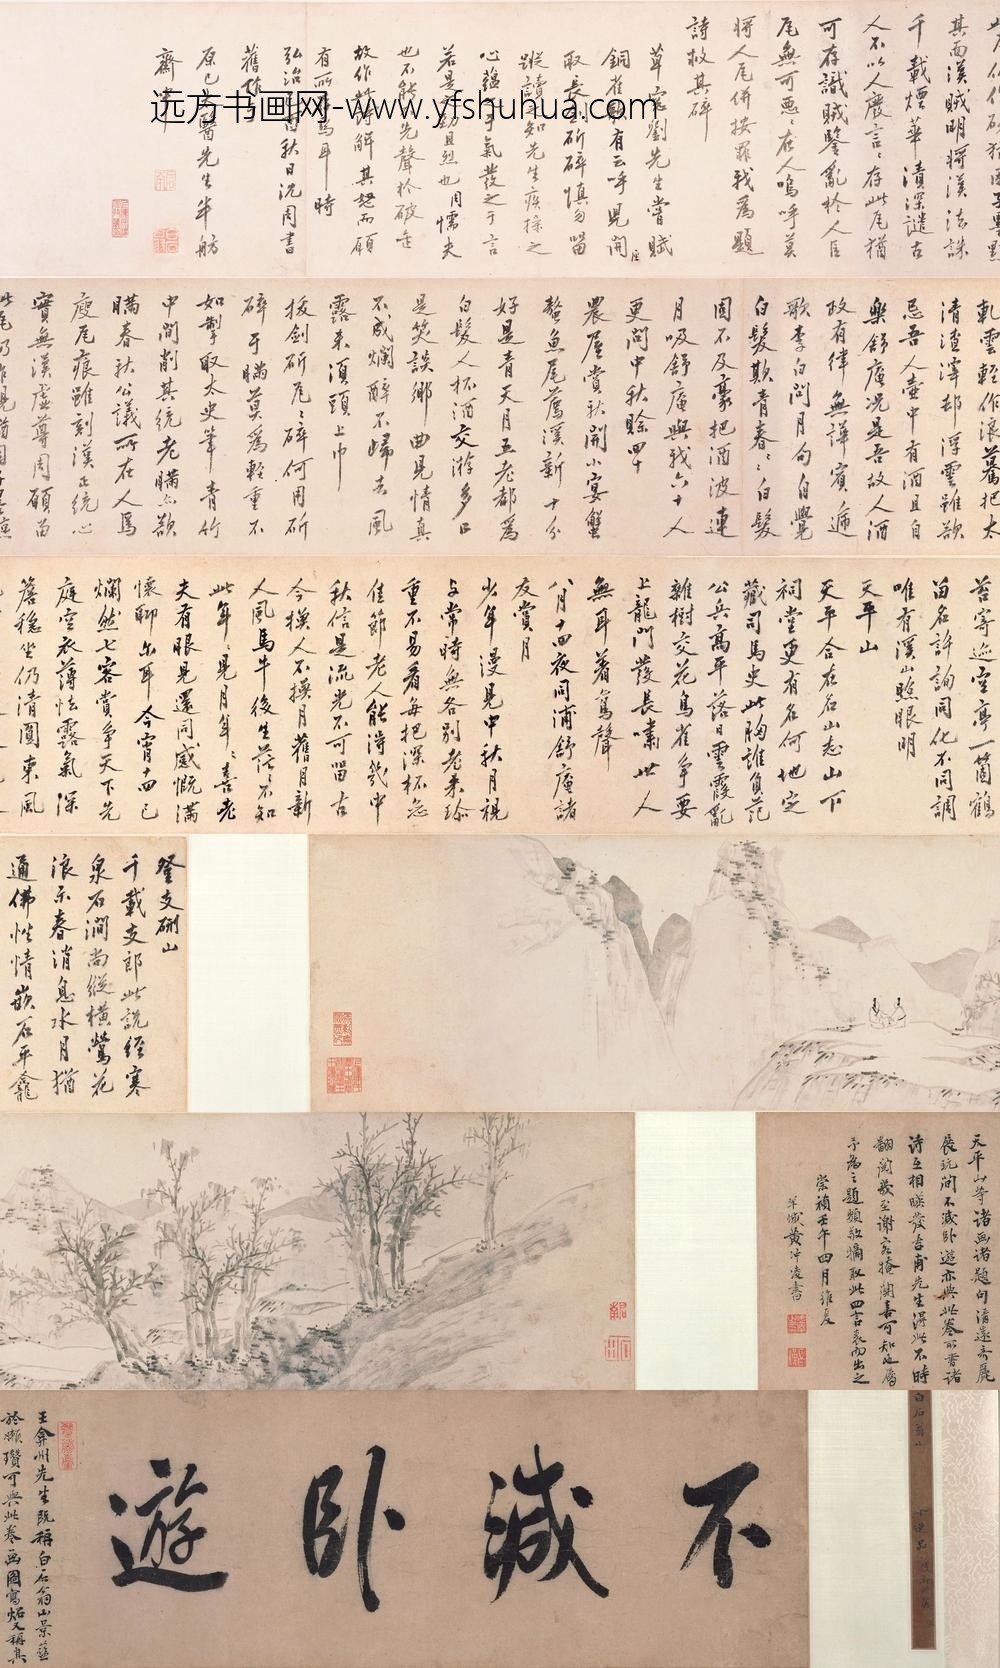 其面漢賊明將漢法誅
千載煙華漬深譴古
人不以人廢言〻存此瓦猶
可存識賊鑒亂於人臣
瓦無可惡〻在人嗚呼莫
將人瓦併按罪我為題
詩救其碎
草窗劉先生嘗賦
銅雀硯有云呼兒聞
取長刀斫碎慎勿留
蹤讀知先生疾操之
心蘊乎氣發之于言
若是勁且烈也周懦夫
也不能先聲於破缶
故作此詩解其怒而願
有所為耳時
弘治秋日沈周書
舊作
原已太醫先生半舫
齋
远方书画网-www.yfshuhua.com
乾雲輕作浪驀把太
清渣滓却浮雲雖欲
忌吾人壺中有酒且自
樂舒庵況是吾故人酒
政有律無譁賓遍
歌李白問月句自覺
白髮欺青春〻〻白髮
固不及豪把酒波連
月吸舒庵與我六十人
更問中秋賒四十
農屋賞秋開小宴蟹
螯魚尾薦溪新十分
好是青天月五老都為
白髮人杯酒交游多日
是笑談鄉曲見情真
不成爛醉不歸去風
露未須頭上巾
拔劍斫瓦〻碎何用斫
碎于瞞莫為輕重不
如掣取太史筆青竹
中間削其統老瞞亦欲
瞞春秋公議所在人焉
廋瓦痕雖刻漢正統心
實無漢虛尊周願留
此瓦仍作硯猶固守墨
苔寄迹空亭一箇鶴
留名許詢同化不同調
唯有溪山照眼明
天平山
天平合在名山志山下
祠堂更有名何地定
藏司馬史此胸誰負范
公兵萬平落日雲霞亂
雜樹交花鳥雀爭要
上龍門發長嘯世人
無耳著鸞聲
八月十四夜同浦舒庵諸
友賞月
少年漫見中秋月視
与常時無各別老來珍
重不易看每把深杯忽
佳節老人能得幾中
秋信是流光不可留古
今換人不換月舊月新
人風馬牛後生茫〻不知
此年〻見月年〻喜老
夫有眼見還同感慨滿
懷聊尔耳今宵十四已
爛然七客賞爭天下先
庭空衣薄怯露氣深
簷穩坐仍清圓東風
登支硎山
千載支郎此說經寒
泉石澗尚縱橫鶯花
浪示春消息水月猶
通佛性情嵌石平龕
天平山等諸画諸題句清遠奇麗
展玩間不減卧遊亦與此卷所書諸
詩互相暎發吉甫先生得此不時
翻閱幾至謝客掩關喜可知也屬
予為之題類敬摘取此四言表而出之
崇禎壬午四月維夏
羊城黃沖凌書
不減卧遊
王弇州先生既稱白石翁山景蓝
於懶瓚可與此卷画圖寫炤又稱其
白石翁山